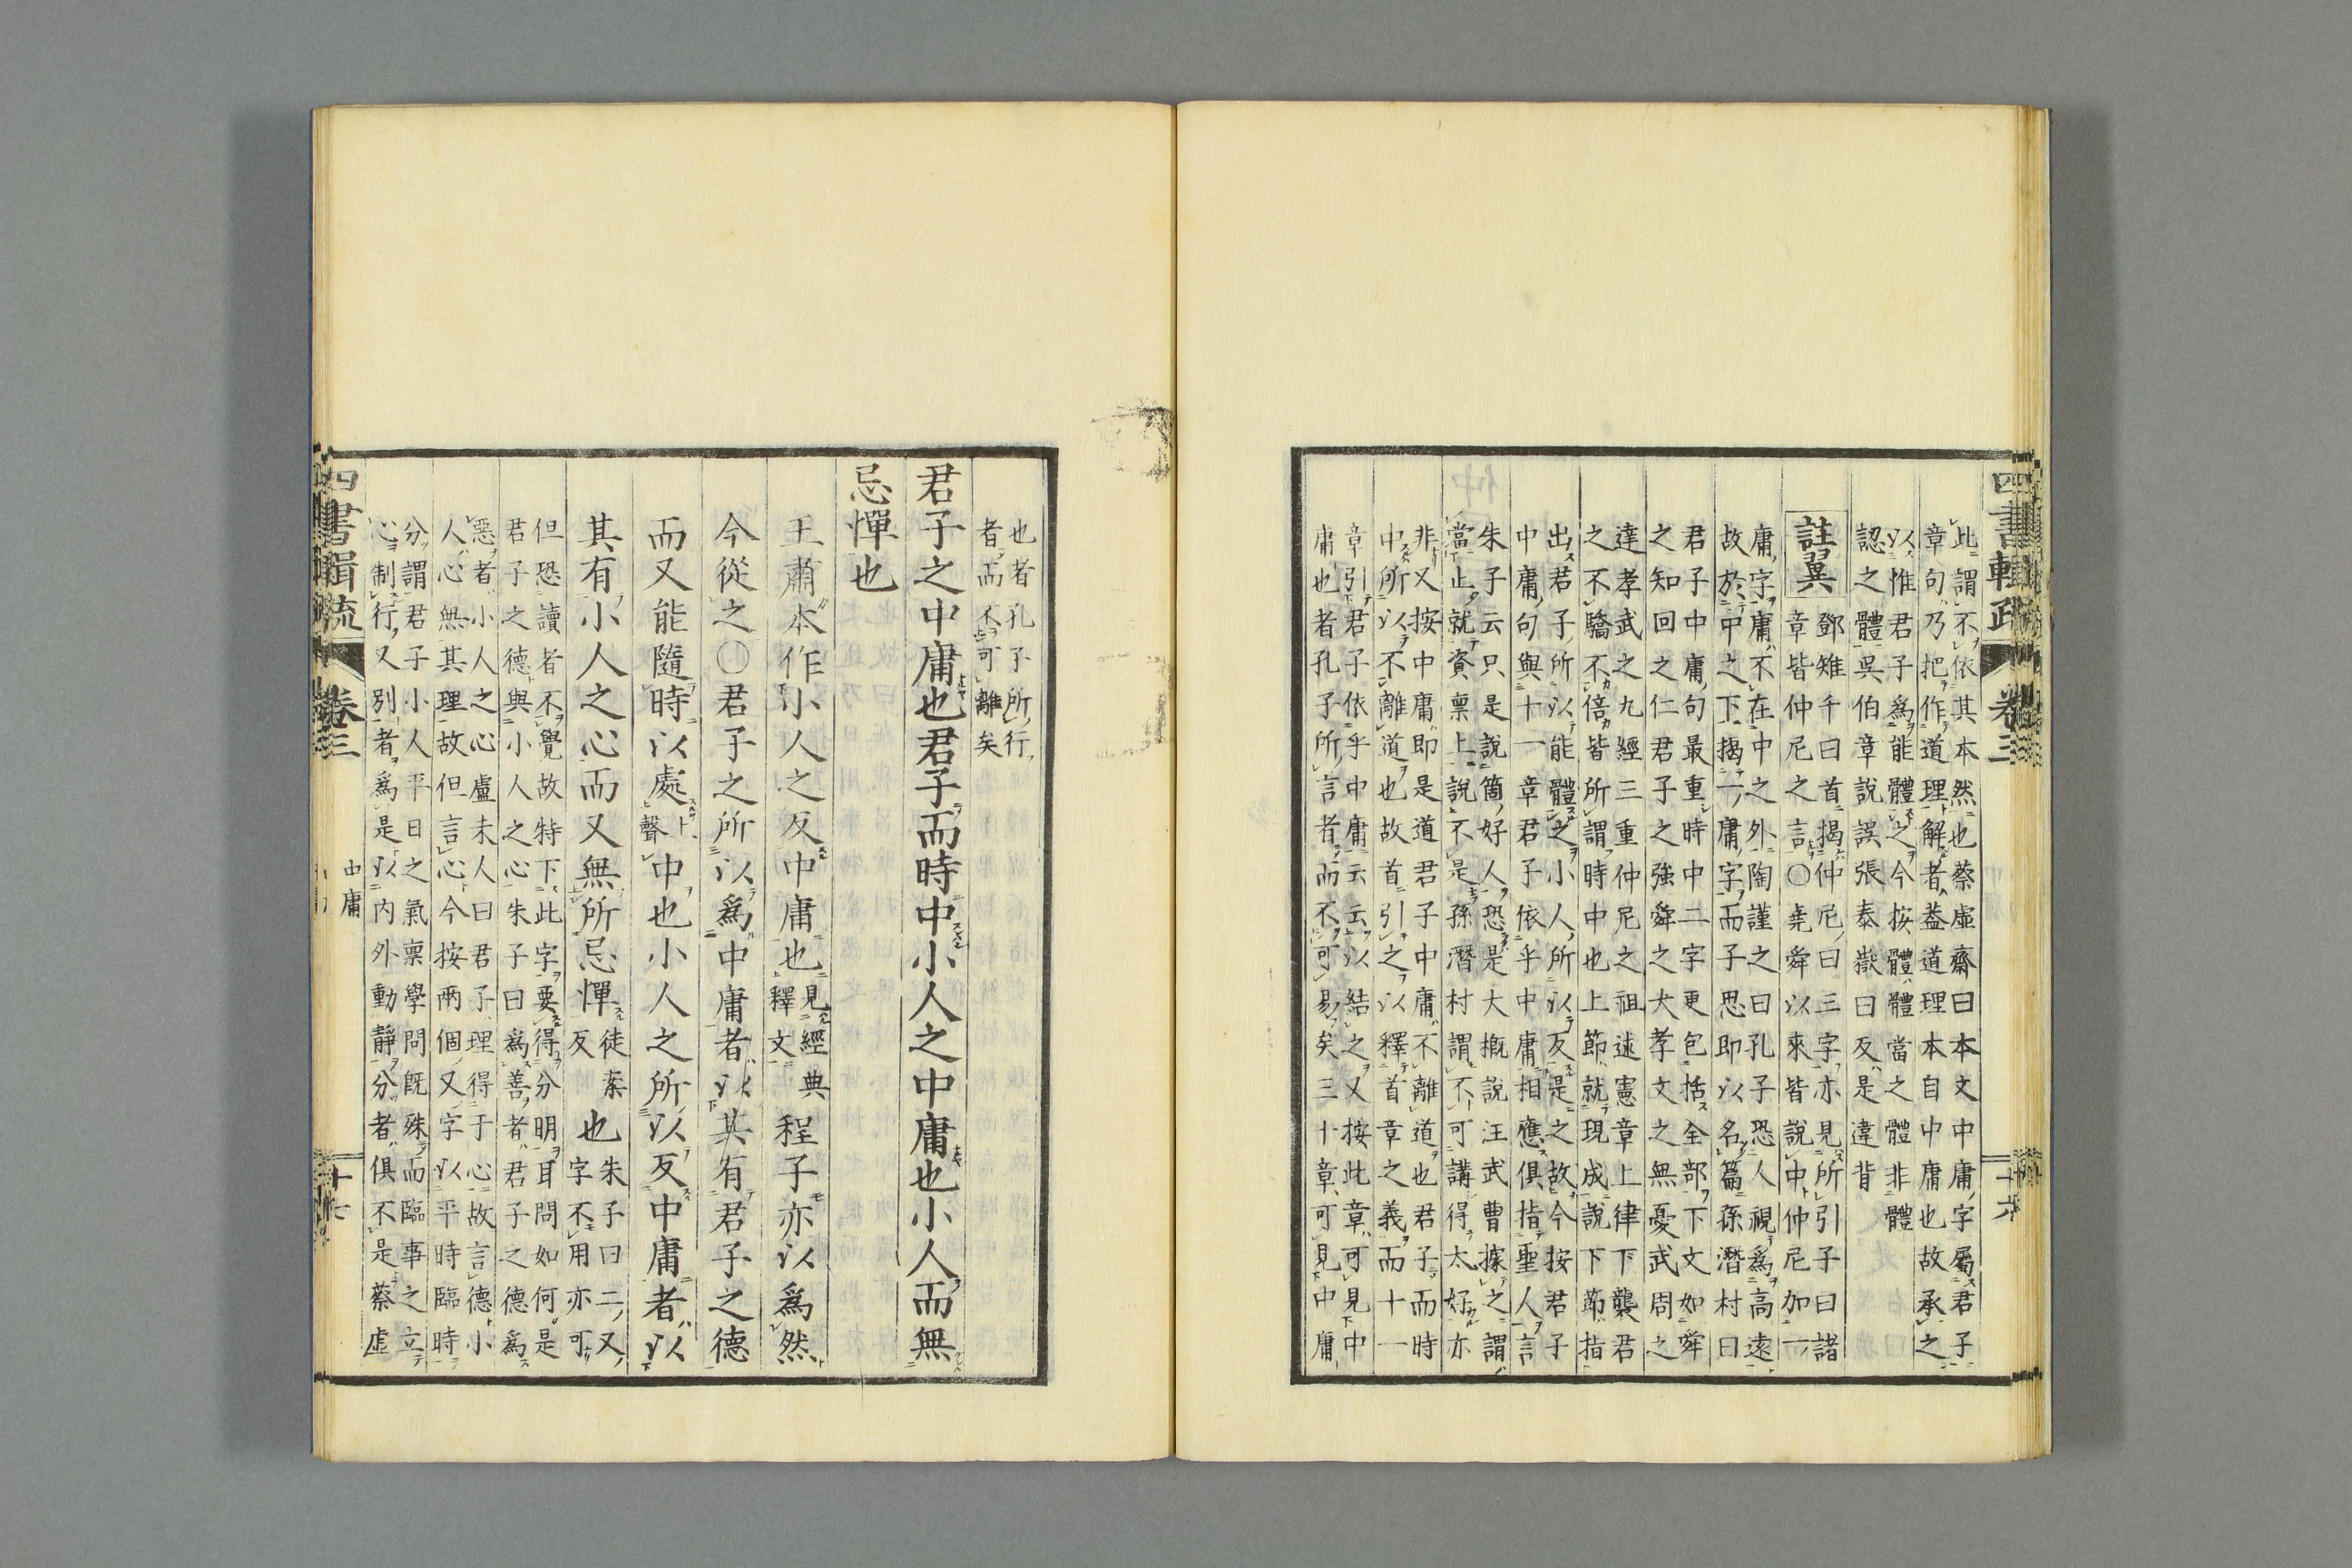 四書輯疏 卷三 十六
此謂不依其本然也蔡虛齋曰本文中庸字屬君子
章句乃把作道理解者蓋道理本自中庸也故承之
以惟君子爲能體之今按體體當之體非體
認之體吳伯章說誤張泰嶽曰反是違背
註翼
鄧雉千曰首揭仲尼曰三字亦見所引子曰諸
章皆仲尼之言〇堯舜以來皆說中仲尼加一
庸字庸不在中之外陶謹之曰孔子恐人視爲高遠
故於中之下揭一庸字而子思卽以名篇孫潛村曰
君子中庸句最重時中二字更包括全部下文如舜
之知回之仁君子之強舜之大孝文之無憂武周之
達孝武之九經三重仲尼之祖述憲章上律下襲君
之不驕不倍皆所謂時中也上節就現成說下節指
出君子所以能體之小人所以反是之故今按君子
中庸句與十一章君子依乎中庸相應俱指聖人言
朱子云只是說箇好人恐是大概說汪武曹據之謂
當止就資禀上說不是孫潛村謂不可講得太好亦
非又按中庸卽是道君子中庸不離道也君子而時
中所以不離道也故首引之以釋首章之義而十一
章引君子依乎中庸云云以結之又按此章可見中
庸也者孔子所言者而不可易矣三十章可見中庸
也者孔子所行
者而不可離矣
君子之中庸也君子而時中小人之中庸也小人而無
忌憚也
王肅本作小人之反中庸也見經典釋文程子亦以爲然
今從之〇君子之所以爲中庸者以其有君子之德
而又能隨時以處上聲中也小人之所以反中庸者以
其有小人之心而又無所忌憚徒案反也朱子曰二又字不用亦可
但恐讀者不覺故特下此字要得分明耳問如何是
君子之德與小人之心朱子曰爲善者君子之德爲
惡者小人之心盧未人曰君子理得于心故言德小
人心無其理故但言心今按兩個又字以平時臨時
分謂君子小人平日之氣禀學問旣殊而臨事之立
心制行又別者爲是以內外動靜分者俱不是蔡虛
四書輯疏 卷三 中庸 十七